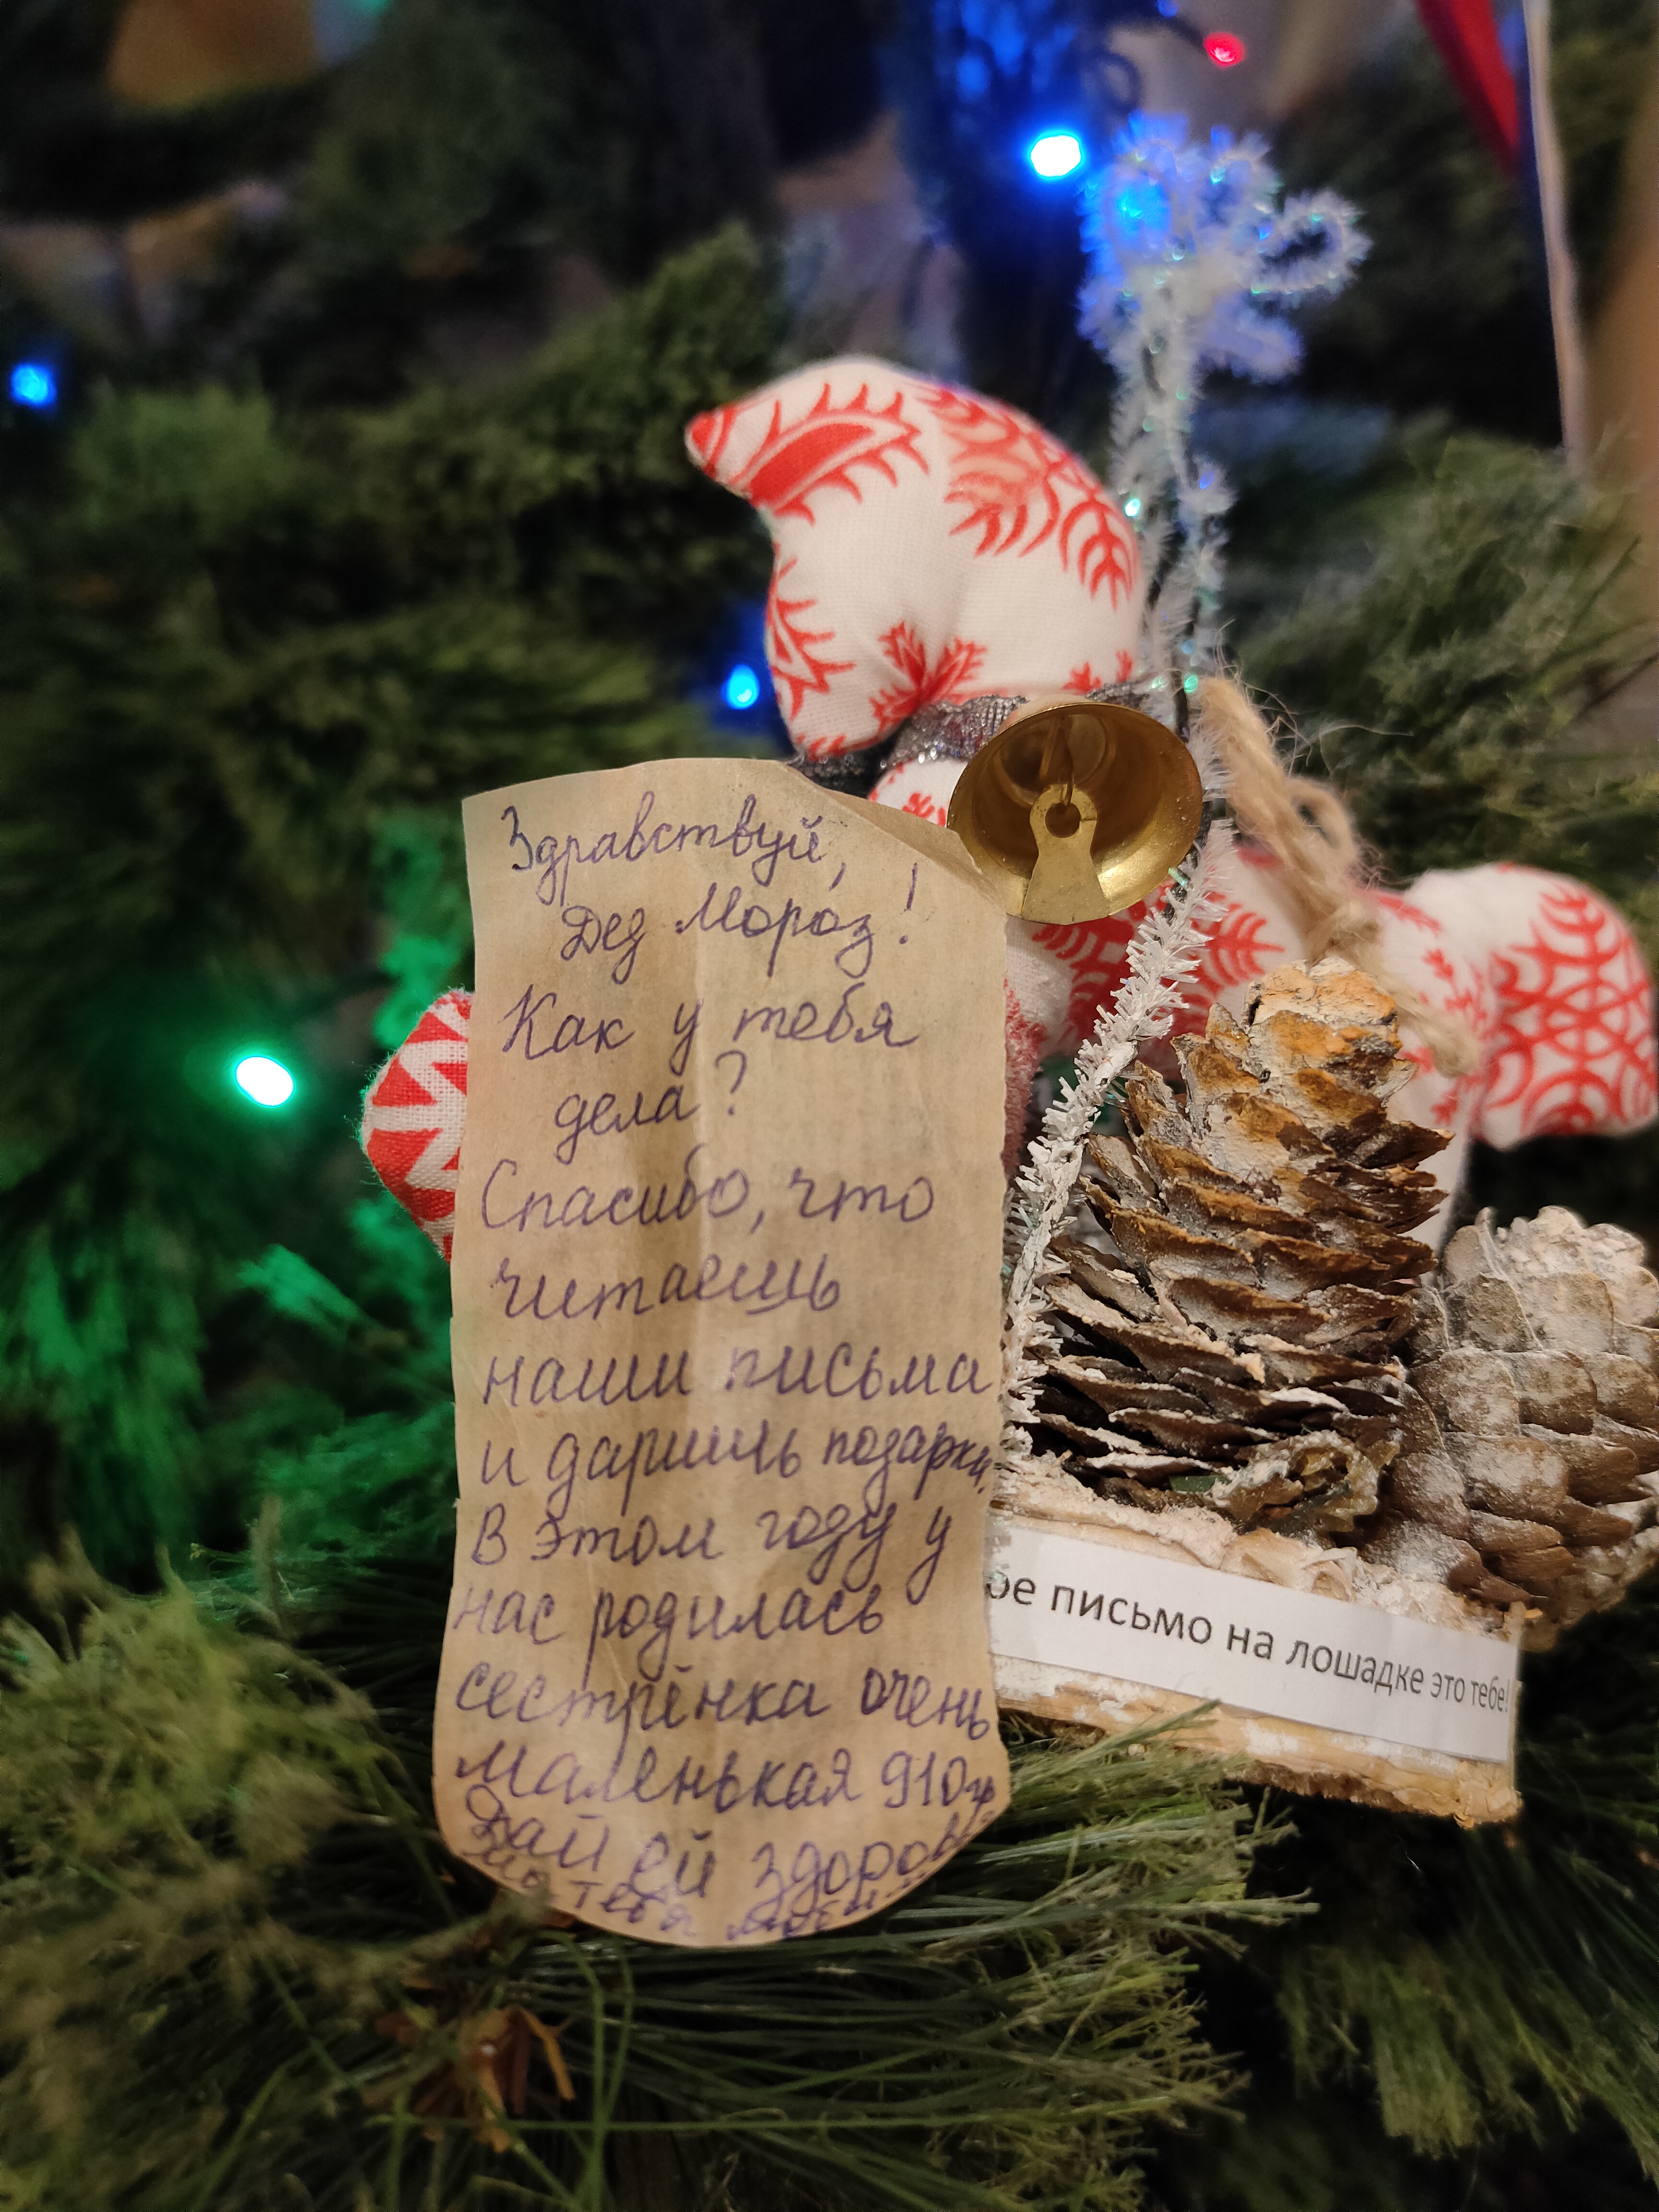 Здравствуй,
Дед Мороз!
Как у тебя
дела?
Спасибо, что
читаешь
наши письма
и даришь подарки.
В этом году у
нас родилась
сестрёнка очень
маленькая 910гр
Дай ей здоровье
тебя
ое письмо на лошадке это тебе!